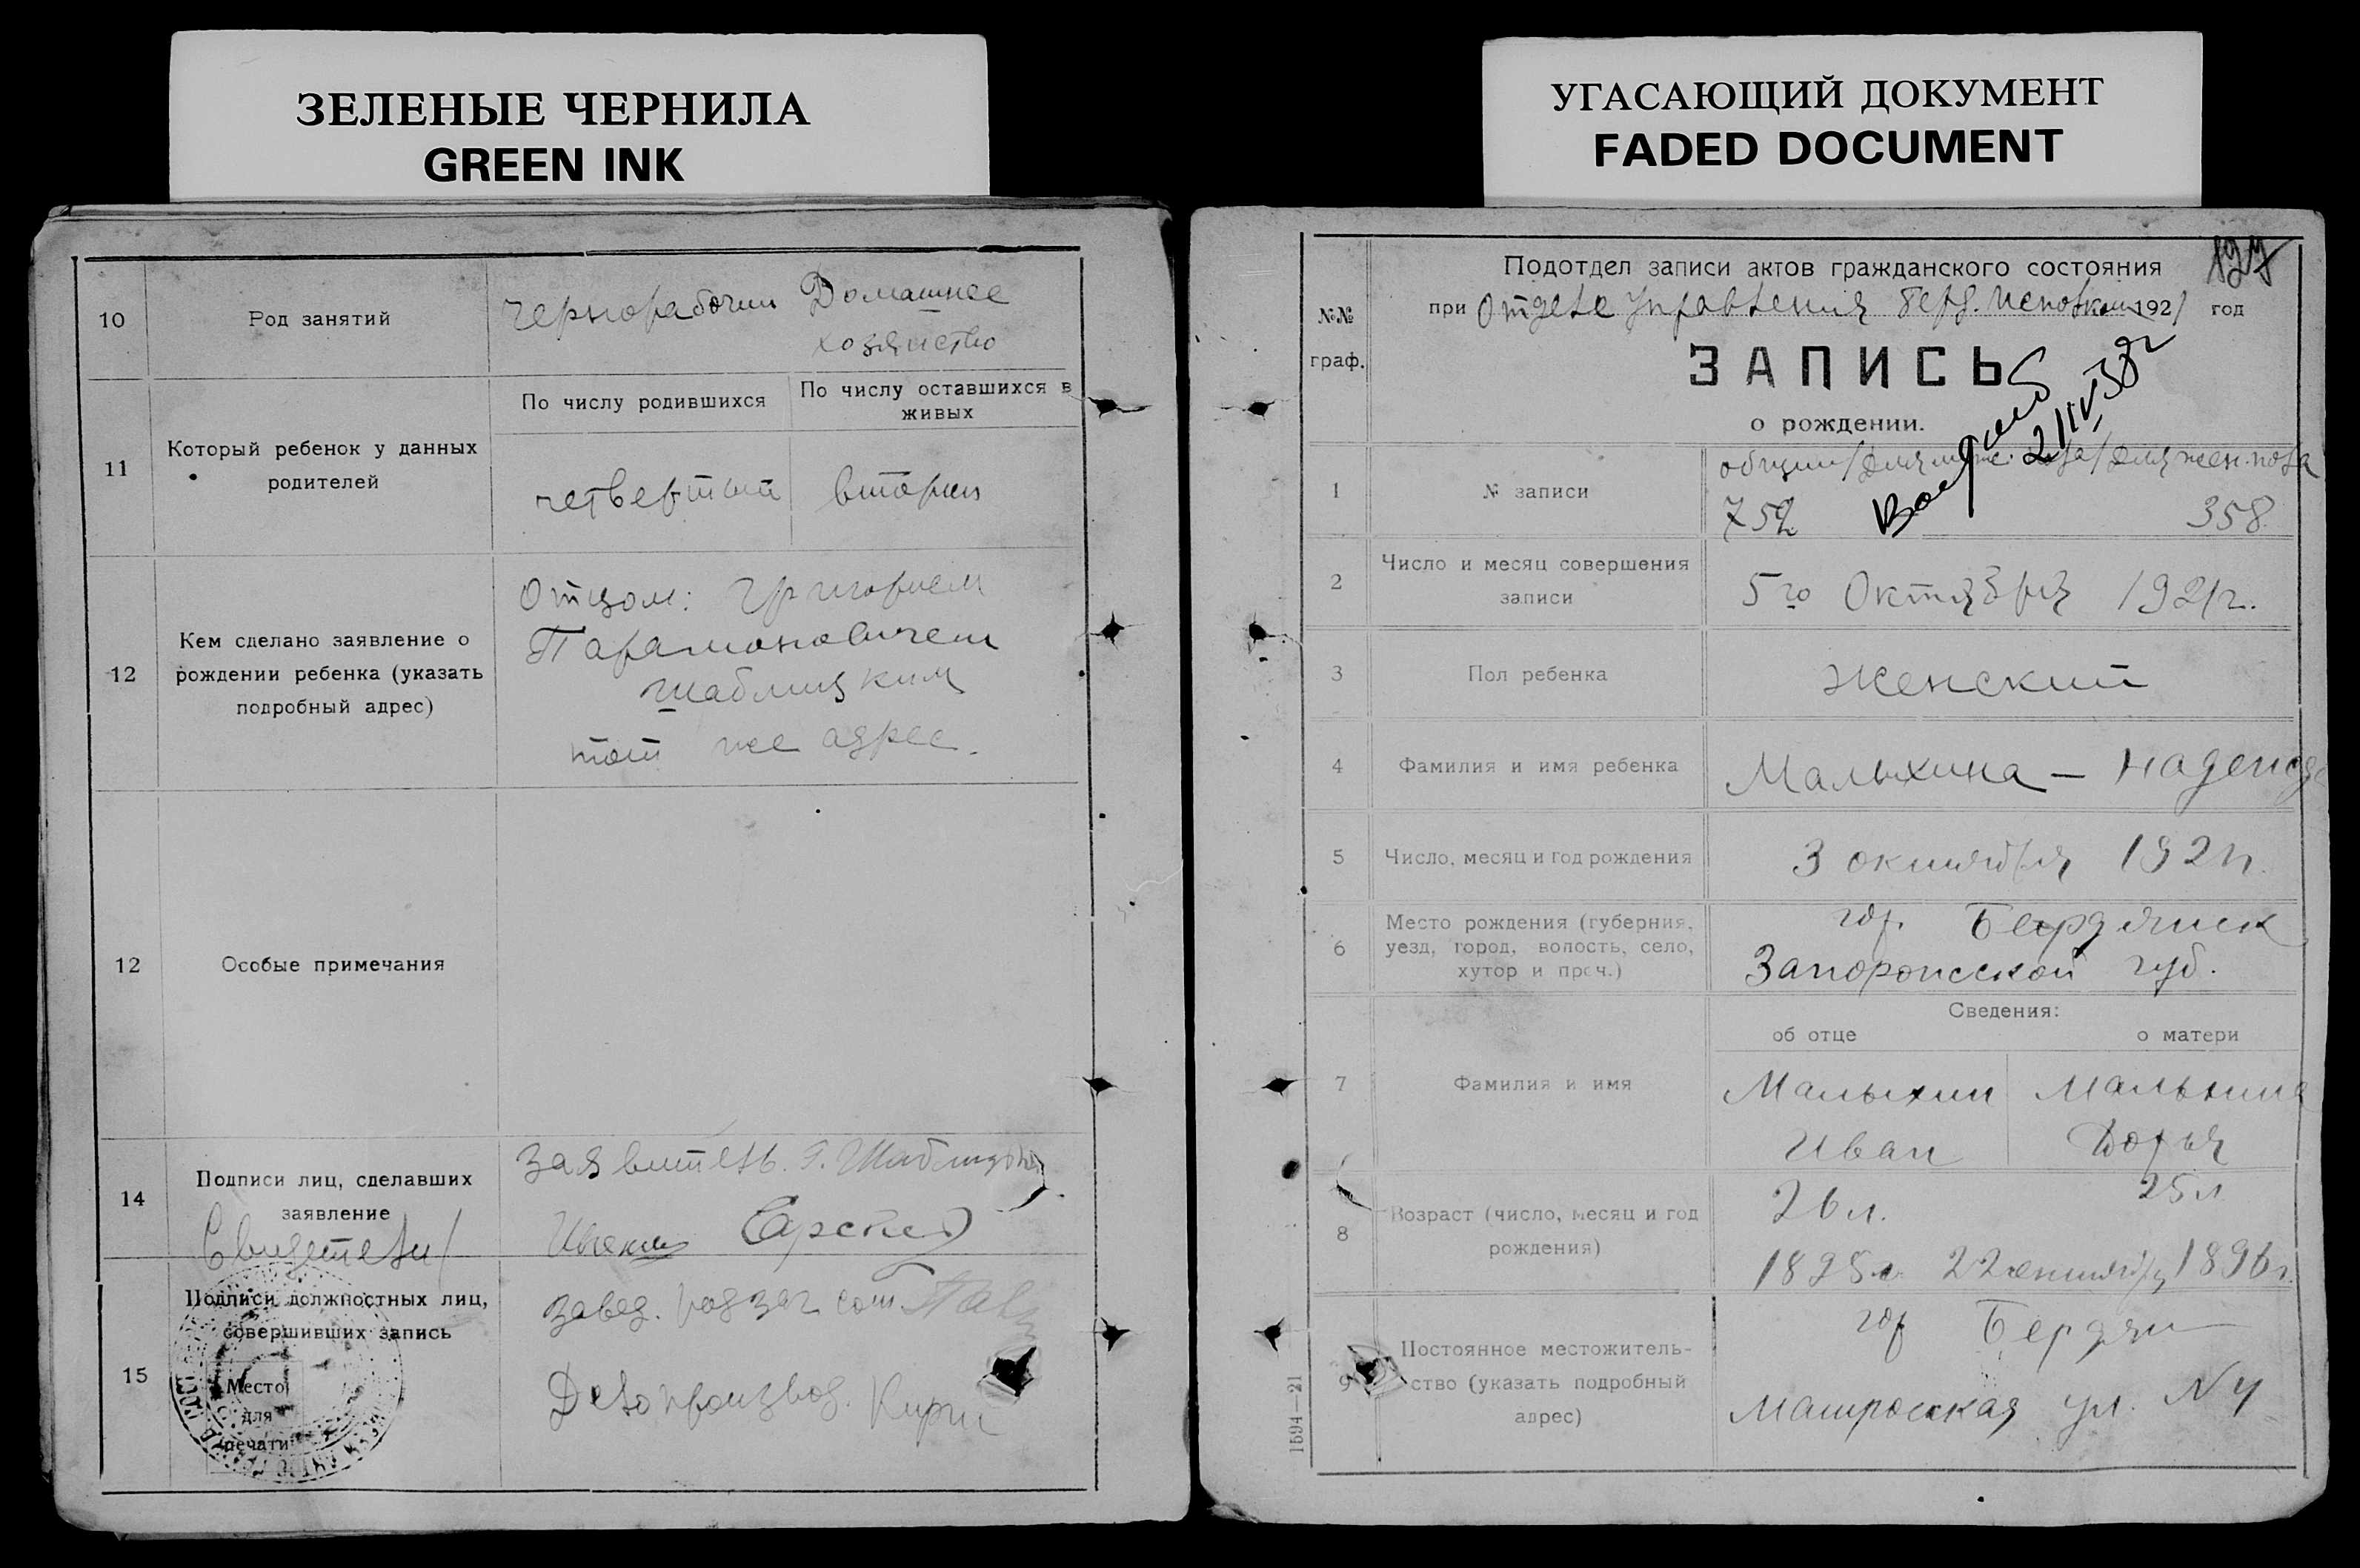 ЗЕЛЕНЫЕ ЧЕРНИЛА
GREEN INK
10
Род занятий
чернорабочий
Домашнее
хозяйство
11
Который ребенок у данных
родителей
По числу родившихся
По числу оставшихся в
живых
четвертый
вторый
12
Кем сделано заявление о
рождении ребенка (указать
подробный адрес)
Отцом: Григорием
Парамоновичем
Шаблицким
тот же адрес.
12
Особые примечания
14
Подписи лиц, сделавших
заявление
Свидетели
заявитель. Г.
15
Подписи должностных лиц,
совершивших запись
Место
для
печати
завед.
Делопроизвод.
УГАСАЮЩИЙ ДОКУМЕНТ
FADED DOCUMENT
127
№№
граф.
Подотдел записи актов гражданского состояния
при Отделе Управления Берд. Исполком 1921 год
ЗАПИСЬ
о рождении.
1
№ записи
общий / для муж. пола / для жен. пола
752
358
2
Число и месяц совершения
записи
5го Октября 1921г.
3
Пол ребенка
Женский
4
Фамилия и имя ребенка
Малыхина — Надежда
5
Число, месяц и год рождения
3 октября 1921г.
6
Место рождения (губерния,
уезд, город, волость, село,
хутор и проч.)
гор. Бердянск
Запорожской губ.
Сведения:
об отце
о матери
7
Фамилия и имя
Малыхин
Малыхина
Иван
Дарья
8
Возраст (число, месяц и год
рождения)
26 л.
25 л
1895г.
1896г.
9
Постоянное местожитель-
ство (указать подробный
адрес)
гор Бердян
Матросская ул. N 4
1594—21